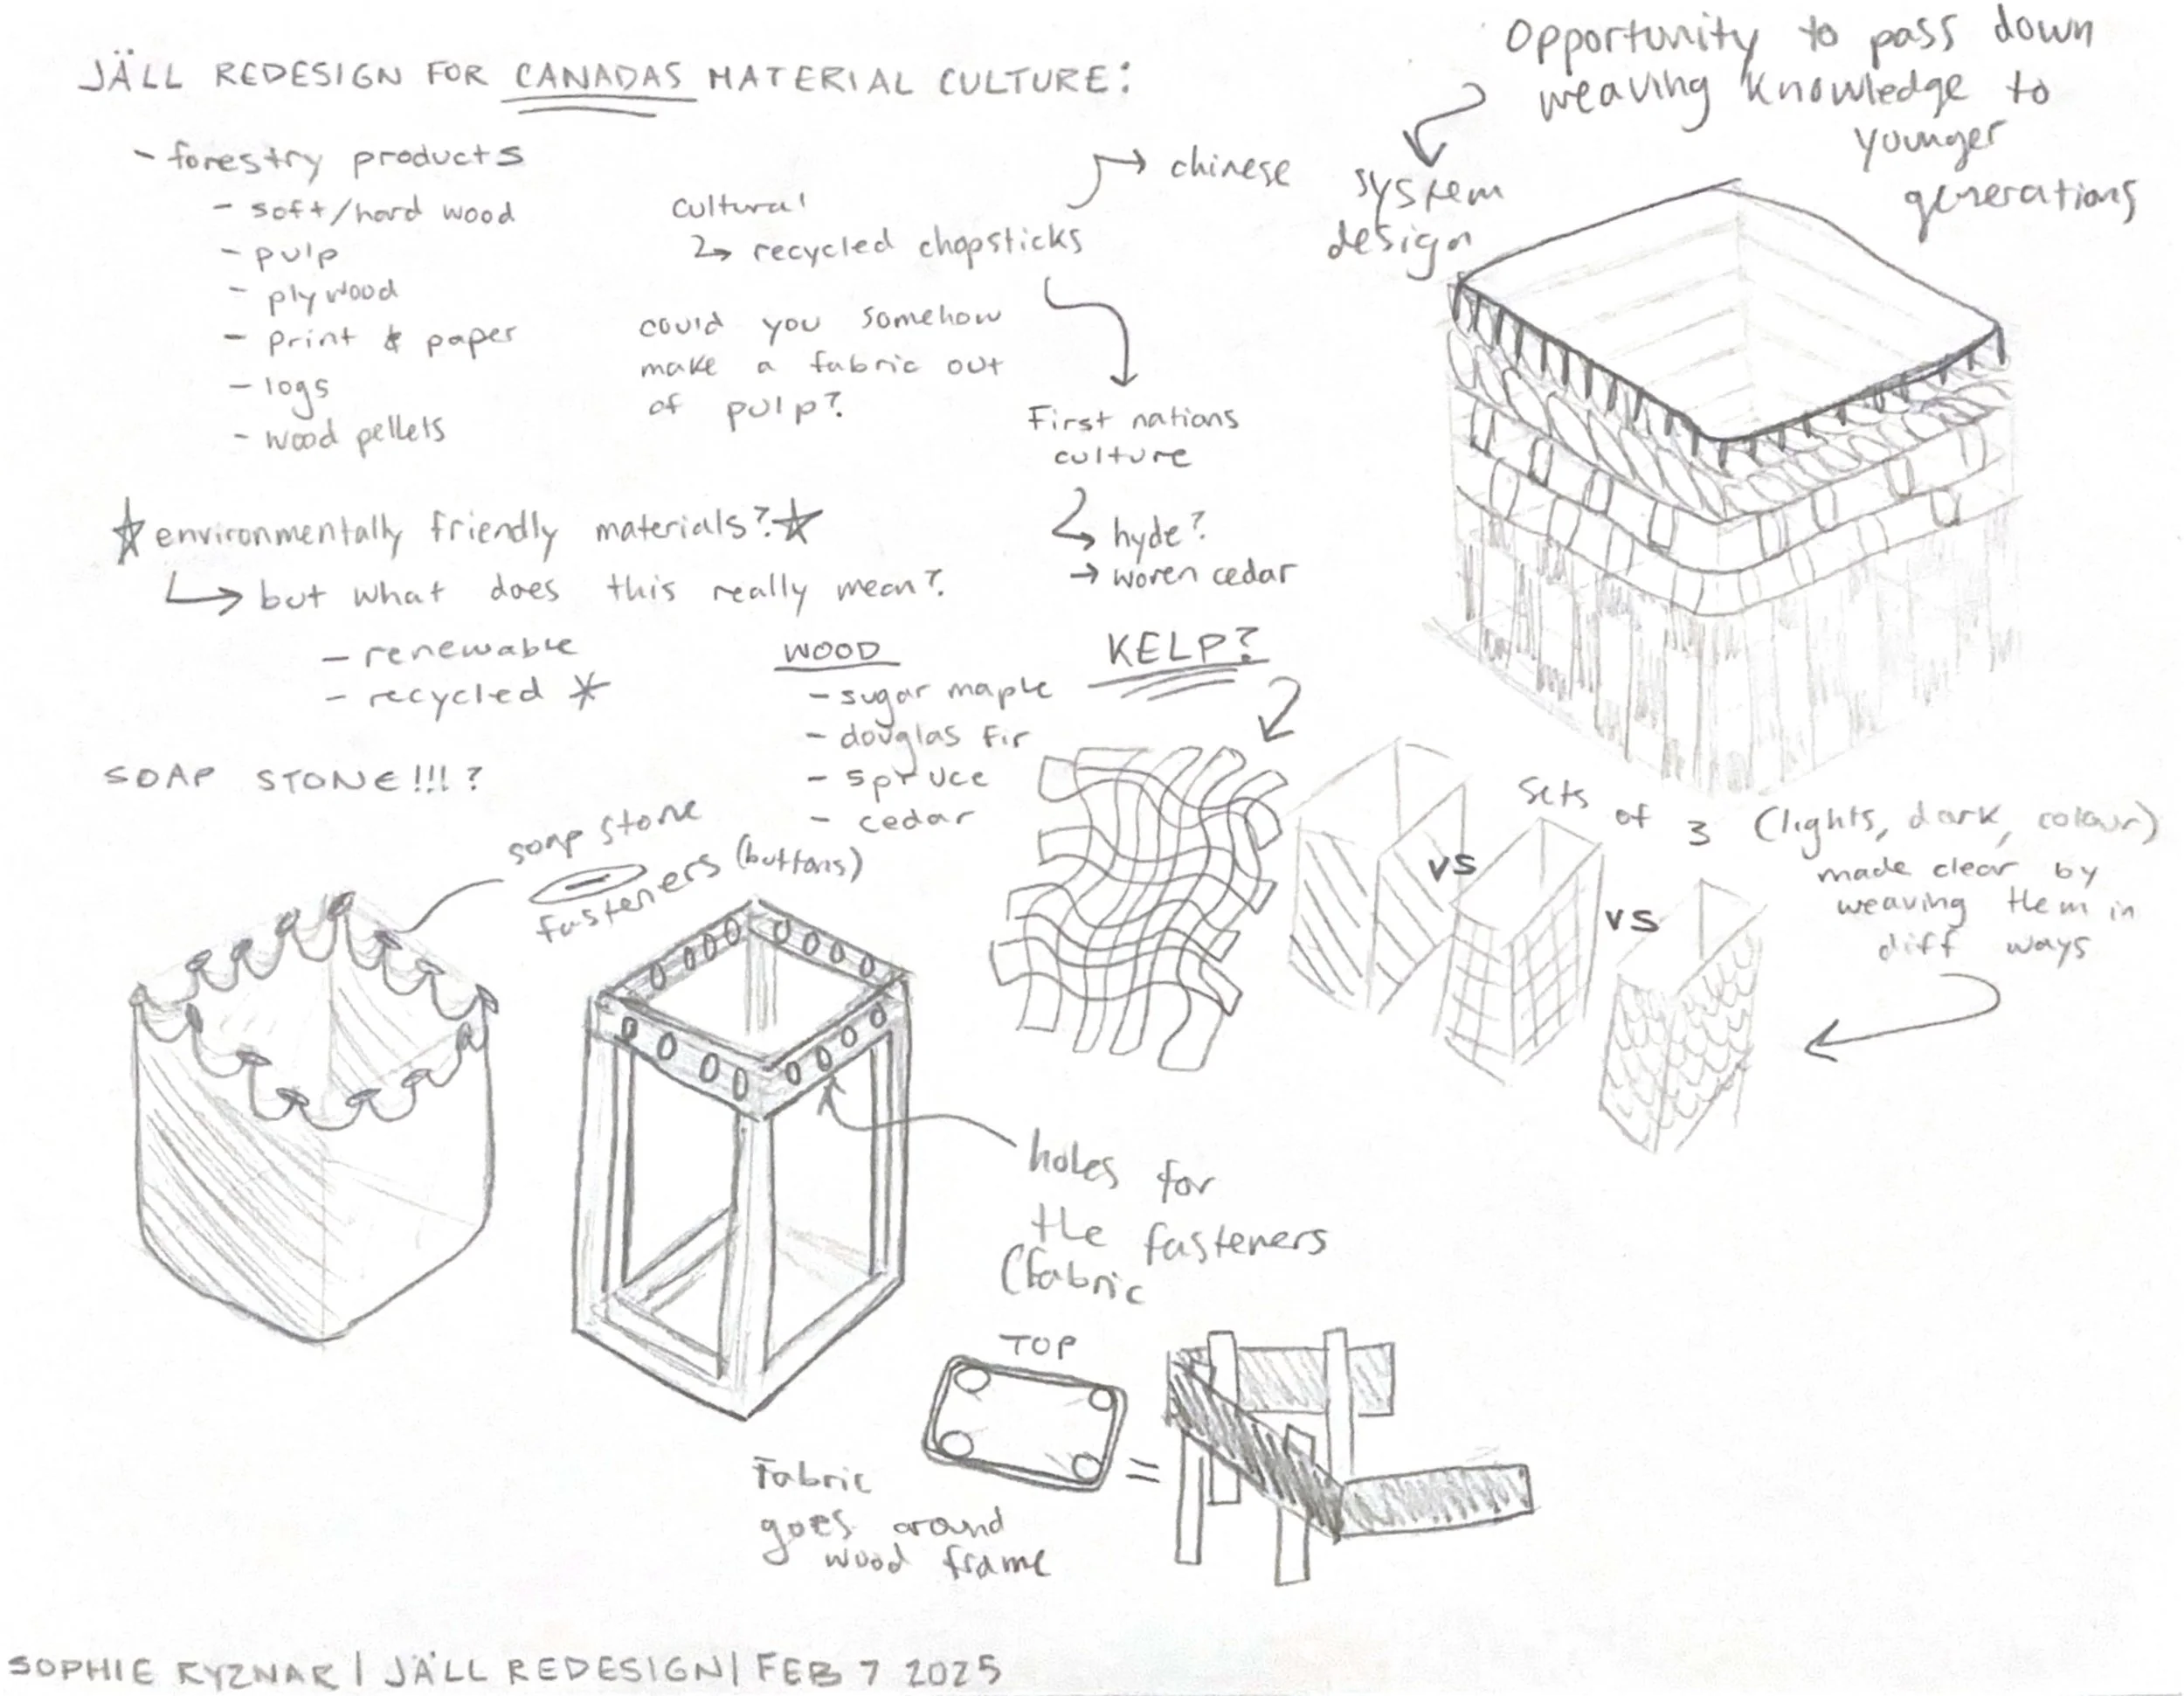 JÄLL REDESIGN FOR CANADAS MATERIAL CULTURE:
- forestry products
- soft/hard wood
- pulp
- plywood
- print & paper
- logs
- wood pellets
cultural
↳ recycled chopsticks
→ chinese
could you somehow
make a fabric out
of pulp?
First nations
culture
↳ hyde?
→ woven cedar
Opportunity to pass down
weaving knowledge to
younger
generations
system
design
☆ environmentally friendly materials? ☆
↳ but what does this really mean?
- renewable
- recycled *
WOOD
- sugar maple
- douglas fir
- spruce
- cedar
KELP?
SOAP STONE!!!?
soap stone
fasteners (buttons)
Sets of 3 (lights, dark, colour)
made clear by
weaving them in
diff ways
vs
vs
holes for
the fasteners
(fabric
TOP
=
Fabric
goes around
wood frame
SOPHIE RYZNAR | JÄLL REDESIGN | FEB 7 2025